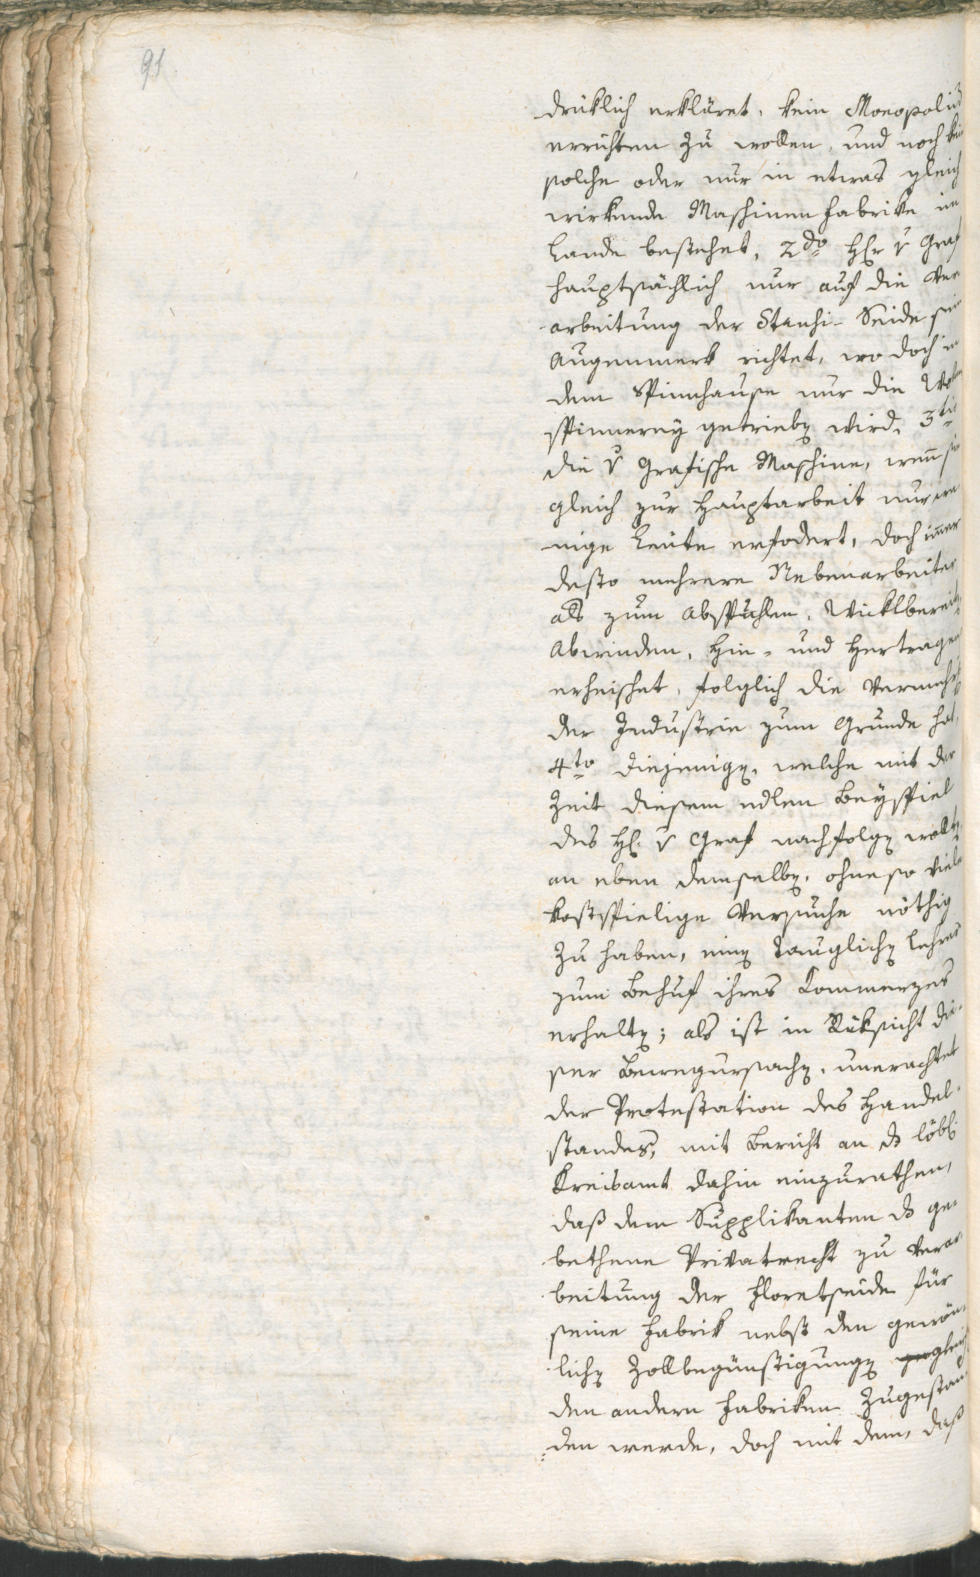 91
drüklich erkläret, kein Monopolium
errichten zu wollen, und noch kein
solche oder nur in etwas gleich
wirkende Maschinen fabrike im
Lande bestehet, 2do Hr v Graf
hauptsächlich nur auf die Ver
arbeitung der Seide sein
Augenmerk richtet, wo doch in
dem Spinnhause nur die Woll
spinnerey getrieben wird, 3tio
die v Grafische Maschine, wenn sie
gleich zur Hauptarbeit nur we
nige Leute erfodert, doch immer
desto mehrere Nebenarbeiter
als zum Abspuhlen,
Abwinden, Hin- und Hertragen
erheischet, folglich die Vermehr
der Industrie zum Grunde hat,
4to diejenigen, welche mit der
Zeit diesem edlen Beyspiel
des H. v Graf nachfolgen wollen
an eben demselben, ohne so viele
kostspielige Versuche nöthig
zu haben, einen tauglichen Lehrer
zum Behuf ihres Commerzes
erhalten; als ist in Rüksicht die
ser Bewegursachen, unerachtet
der Protestation des Handel
standes, mit Bericht an das löbl.
Kreisamt dahin einzurathen,
daß dem Supplikanten das ge-
bethene Privatrecht zu Verar
beitung der Floretseide für
seine Fabrik nebst den gewön
lichen Zollbegünstigungen gleich
den andern Fabriken zugestan
den werde, doch mit dem, daß